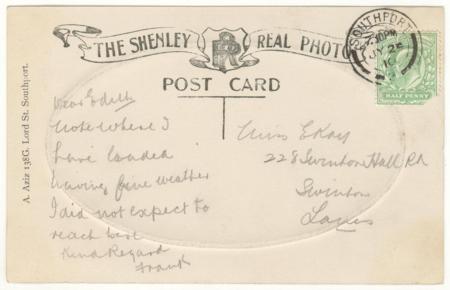 THE SHENLEY REAL PHOTO
POST CARD
SOUTHPORT
7.30PM
JY 25
10
HALF PENNY
A. Aziz 138G. Lord St. Southport.
Dear Edith
Note where I
have landed
having fine weather
I did not expect to
reach here
Kind Regard
Frank
Miss E Kay
228 Swinton Hall Rd
Swinton
Lancs